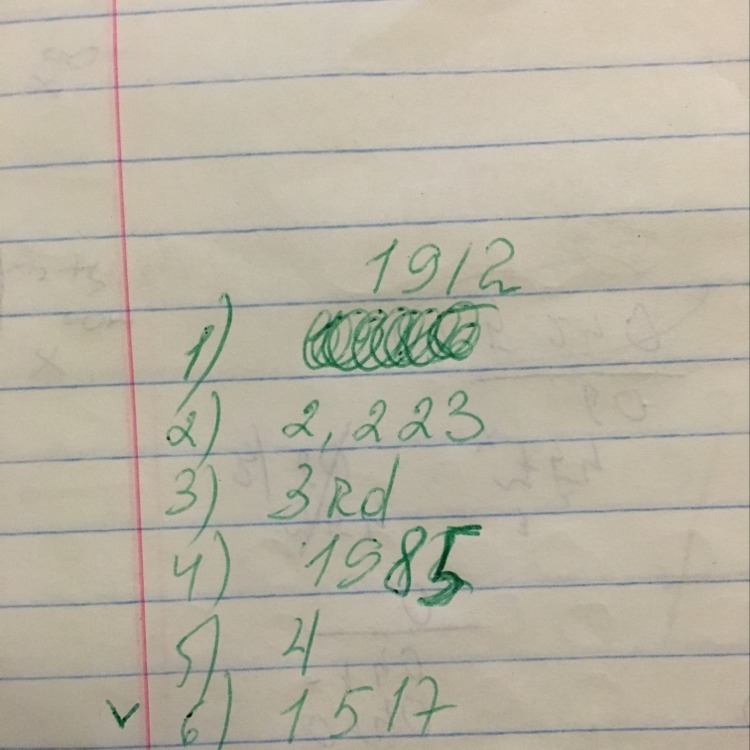 1912
1)
2) 2,223
3) 3Rd
4) 1985
5) 4
6) 1517